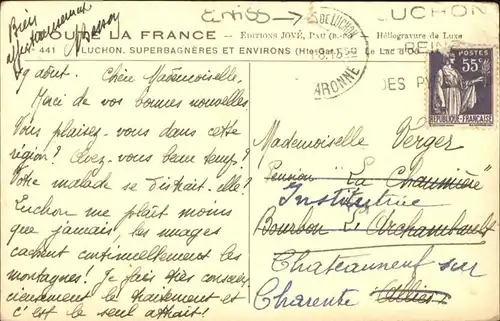 Bien
affectueusement
LA FRANCE — EDITIONS JOVÉ, PAU — Héliogravure de Luxe
441 LUCHON. SUPERBAGNÈRES ET ENVIRONS (Hte-Gar.) — Le Lac d'Oô
LUCHON
REINE
DES PY
DE LUCHON
ARONNE
POSTES
55c
REPUBLIQUE FRANÇAISE
29 août. Chère Mademoiselle.
Merci de vos bonnes nouvelles
Vous plaisez-vous dans cette
région? Avez-vous beau temps?
Votre malade se distrait-elle?
Luchon me plaît moins
que jamais, les nuages
cachent continuellement les
montagnes! Je fais très conscien
cieusement le traitement et
c'est le seul attrait!
Mademoiselle Verger
Pension "La Chaumière"
Institutrice
Bourbon L'Archambault
Chateauneuf sur
Charente Allier